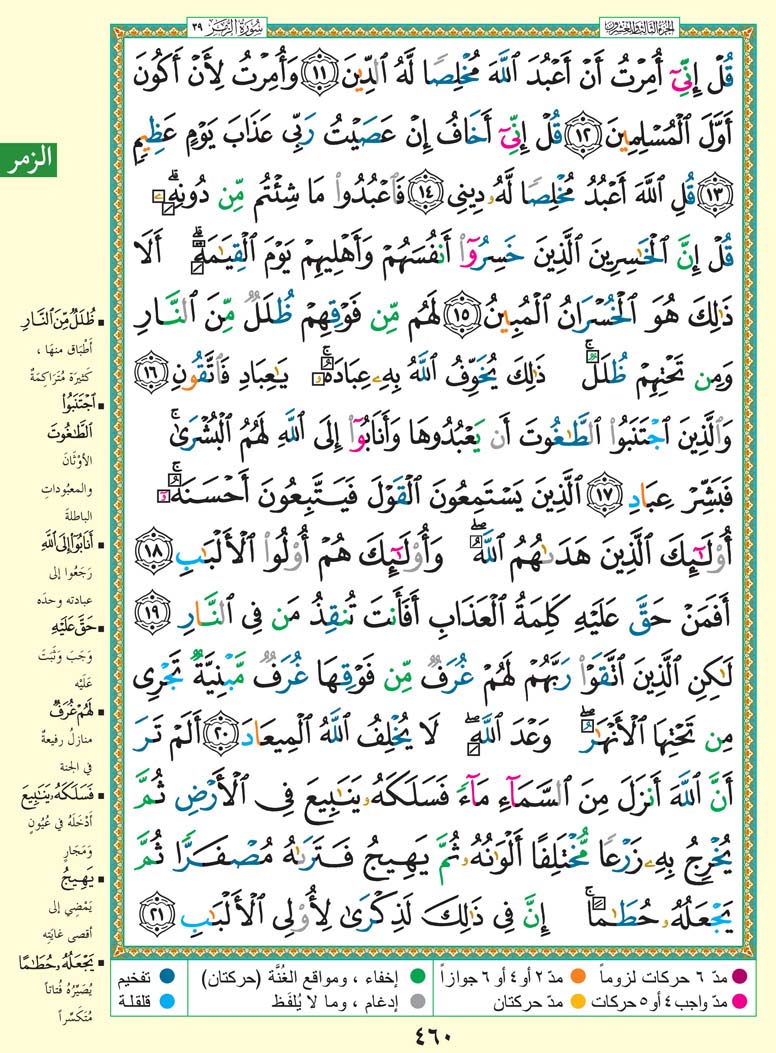 الجزء الثالث والعشرون
سورة الزمر ٣٩
الزمر
قُلْ إِنِّىٓ أُمِرْتُ أَنْ أَعْبُدَ ٱللَّهَ مُخْلِصًا لَّهُ ٱلدِّينَ ١١ وَأُمِرْتُ لِأَنْ أَكُونَ
أَوَّلَ ٱلْمُسْلِمِينَ ١٢ قُلْ إِنِّىٓ أَخَافُ إِنْ عَصَيْتُ رَبِّى عَذَابَ يَوْمٍ عَظِيمٍ
١٣ قُلِ ٱللَّهَ أَعْبُدُ مُخْلِصًا لَّهُۥ دِينِى ١٤ فَٱعْبُدُوا۟ مَا شِئْتُم مِّن دُونِهِۦ ۗ
قُلْ إِنَّ ٱلْخَـٰسِرِينَ ٱلَّذِينَ خَسِرُوٓا۟ أَنفُسَهُمْ وَأَهْلِيهِمْ يَوْمَ ٱلْقِيَـٰمَةِ ۗ أَلَا
ذَٰلِكَ هُوَ ٱلْخُسْرَانُ ٱلْمُبِينُ ١٥ لَهُم مِّن فَوْقِهِمْ ظُلَلٌ مِّنَ ٱلنَّارِ
وَمِن تَحْتِهِمْ ظُلَلٌ ۚ ذَٰلِكَ يُخَوِّفُ ٱللَّهُ بِهِۦ عِبَادَهُۥ ۚ يَـٰعِبَادِ فَٱتَّقُونِ ١٦
وَٱلَّذِينَ ٱجْتَنَبُوا۟ ٱلطَّـٰغُوتَ أَن يَعْبُدُوهَا وَأَنَابُوٓا۟ إِلَى ٱللَّهِ لَهُمُ ٱلْبُشْرَىٰ ۚ
فَبَشِّرْ عِبَادِ ١٧ ٱلَّذِينَ يَسْتَمِعُونَ ٱلْقَوْلَ فَيَتَّبِعُونَ أَحْسَنَهُۥٓ ۚ
أُو۟لَـٰٓئِكَ ٱلَّذِينَ هَدَىٰهُمُ ٱللَّهُ ۖ وَأُو۟لَـٰٓئِكَ هُمْ أُو۟لُوا۟ ٱلْأَلْبَـٰبِ ١٨
أَفَمَنْ حَقَّ عَلَيْهِ كَلِمَةُ ٱلْعَذَابِ أَفَأَنتَ تُنقِذُ مَن فِى ٱلنَّارِ ١٩
لَـٰكِنِ ٱلَّذِينَ ٱتَّقَوْا۟ رَبَّهُمْ لَهُمْ غُرَفٌ مِّن فَوْقِهَا غُرَفٌ مَّبْنِيَّةٌ تَجْرِى
مِن تَحْتِهَا ٱلْأَنْهَـٰرُ ۖ وَعْدَ ٱللَّهِ ۖ لَا يُخْلِفُ ٱللَّهُ ٱلْمِيعَادَ ٢٠ أَلَمْ تَرَ
أَنَّ ٱللَّهَ أَنزَلَ مِنَ ٱلسَّمَآءِ مَآءً فَسَلَكَهُۥ يَنَـٰبِيعَ فِى ٱلْأَرْضِ ثُمَّ
يُخْرِجُ بِهِۦ زَرْعًا مُّخْتَلِفًا أَلْوَٰنُهُۥ ثُمَّ يَهِيجُ فَتَرَىٰهُ مُصْفَرًّا ثُمَّ
يَجْعَلُهُۥ حُطَـٰمًا ۚ إِنَّ فِى ذَٰلِكَ لَذِكْرَىٰ لِأُو۟لِى ٱلْأَلْبَـٰبِ ٢١
ظُلَلٌ مِّنَ ٱلنَّارِ
أَطْبَاق منهَا ،
كَثيرَة مُتَرَاكِمَةٌ
ٱجْتَنَبُوا۟
ٱلطَّـٰغُوتَ
الأَوْثَانَ
والمعبُوداتِ
الباطلةَ
أَنَابُوٓا۟ إِلَى ٱللَّهِ
رَجَعُوا إلى
عبادته وحدَه
حَقَّ عَلَيْهِ
وَجَبَ وَثَبَتَ
عَلَيْه
لَهُمْ غُرَفٌ
منازلُ رفيعةٌ
في الجنة
فَسَلَكَهُۥ يَنَـٰبِيعَ
أَدْخَلَهُ في عُيُونٍ
وَمَجَارٍ
يَهِيجُ
يَمْضِي إلى
أقصى غايَتِه
يَجْعَلُهُۥ حُطَـٰمًا
يُصَيِّرُهُ فُتاتاً
مُتَكَسِّراً
مدّ ٦ حركات لزوماً
مدّ ٢ أو ٤ أو ٦ جوازاً
إخفاء ، ومواقع الغُنَّة (حركتان)
تفخيم
مدّ واجب ٤ أو ٥ حركات
مدّ حركتان
إدغام ، وما لا يُلفَظ
قلقلة
٤٦٠